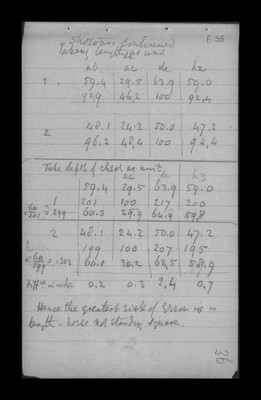 Shotover continued F. 35
Taking length as unit
ab ac de hz
1. 59.4 29.5 63.9 59.0
92.9 46.2 100 92.4
2 48.1 24.2 50.0 47.2
96.2 48.4 100 94.4
Take depth of chest as unit
ac de hz
59.4 29.5 63.9 59.0
1 201 100 217 200
× 60/201 = .299 60.3 29.9 64.9 59.8
2 48.1 24.2 50.0 47.2
199 100 207 195
× 60/199 = .302 60.1 30.2 62.5 58.9
Diffce in inches 0.2 0.3 2.4 0.7
Hence the greatest risk of error is in
length - horse not standing square.
36